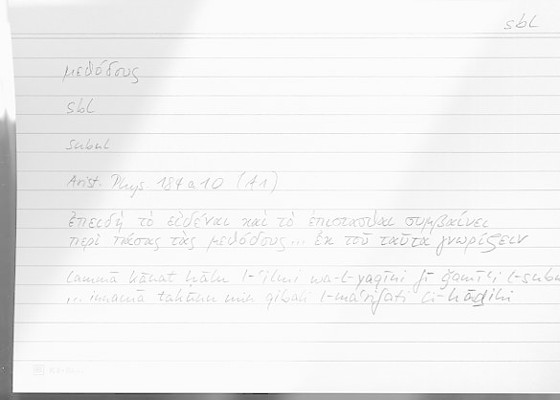 sbl
μεθόδους
sbl
subul
Arist. Phys. 184a10 (A1)
ἐπειδὴ τὸ εἰδέναι καὶ τὸ ἐπίστασθαι συμβαίνει
περὶ πάσας τὰς μεθόδους... ἐκ τοῦ ταῦτα γνωρίζειν
lammā kānat ḥālu l-ʿilmi wa-l-yaqīni fī ǧamīʿi s-subu
... innamā takūnu min qibali l-maʿrifati bi-hāḏihi